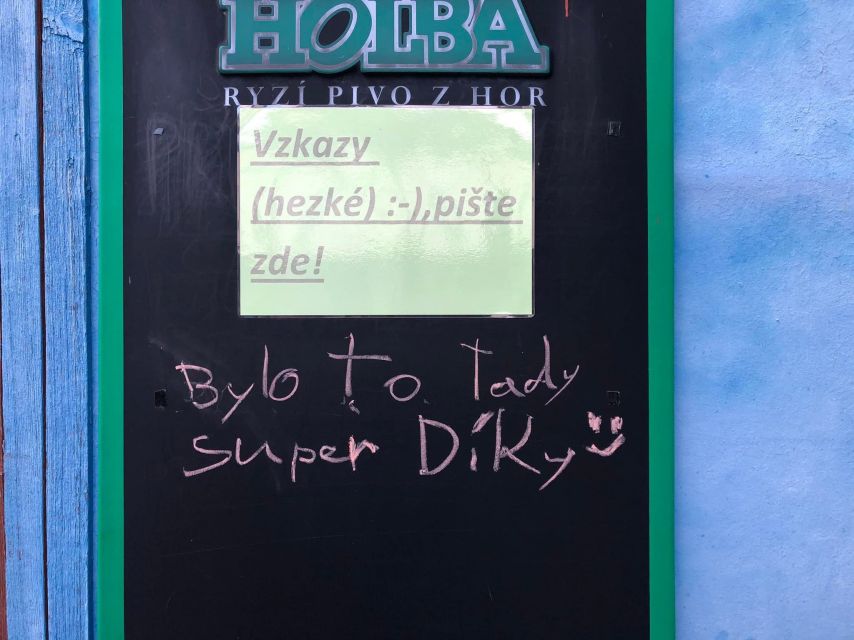 HOLBA
RYZÍ PIVO Z HOR
Vzkazy
(hezké) :-),pište
zde!
Bylo to tady
super Díky